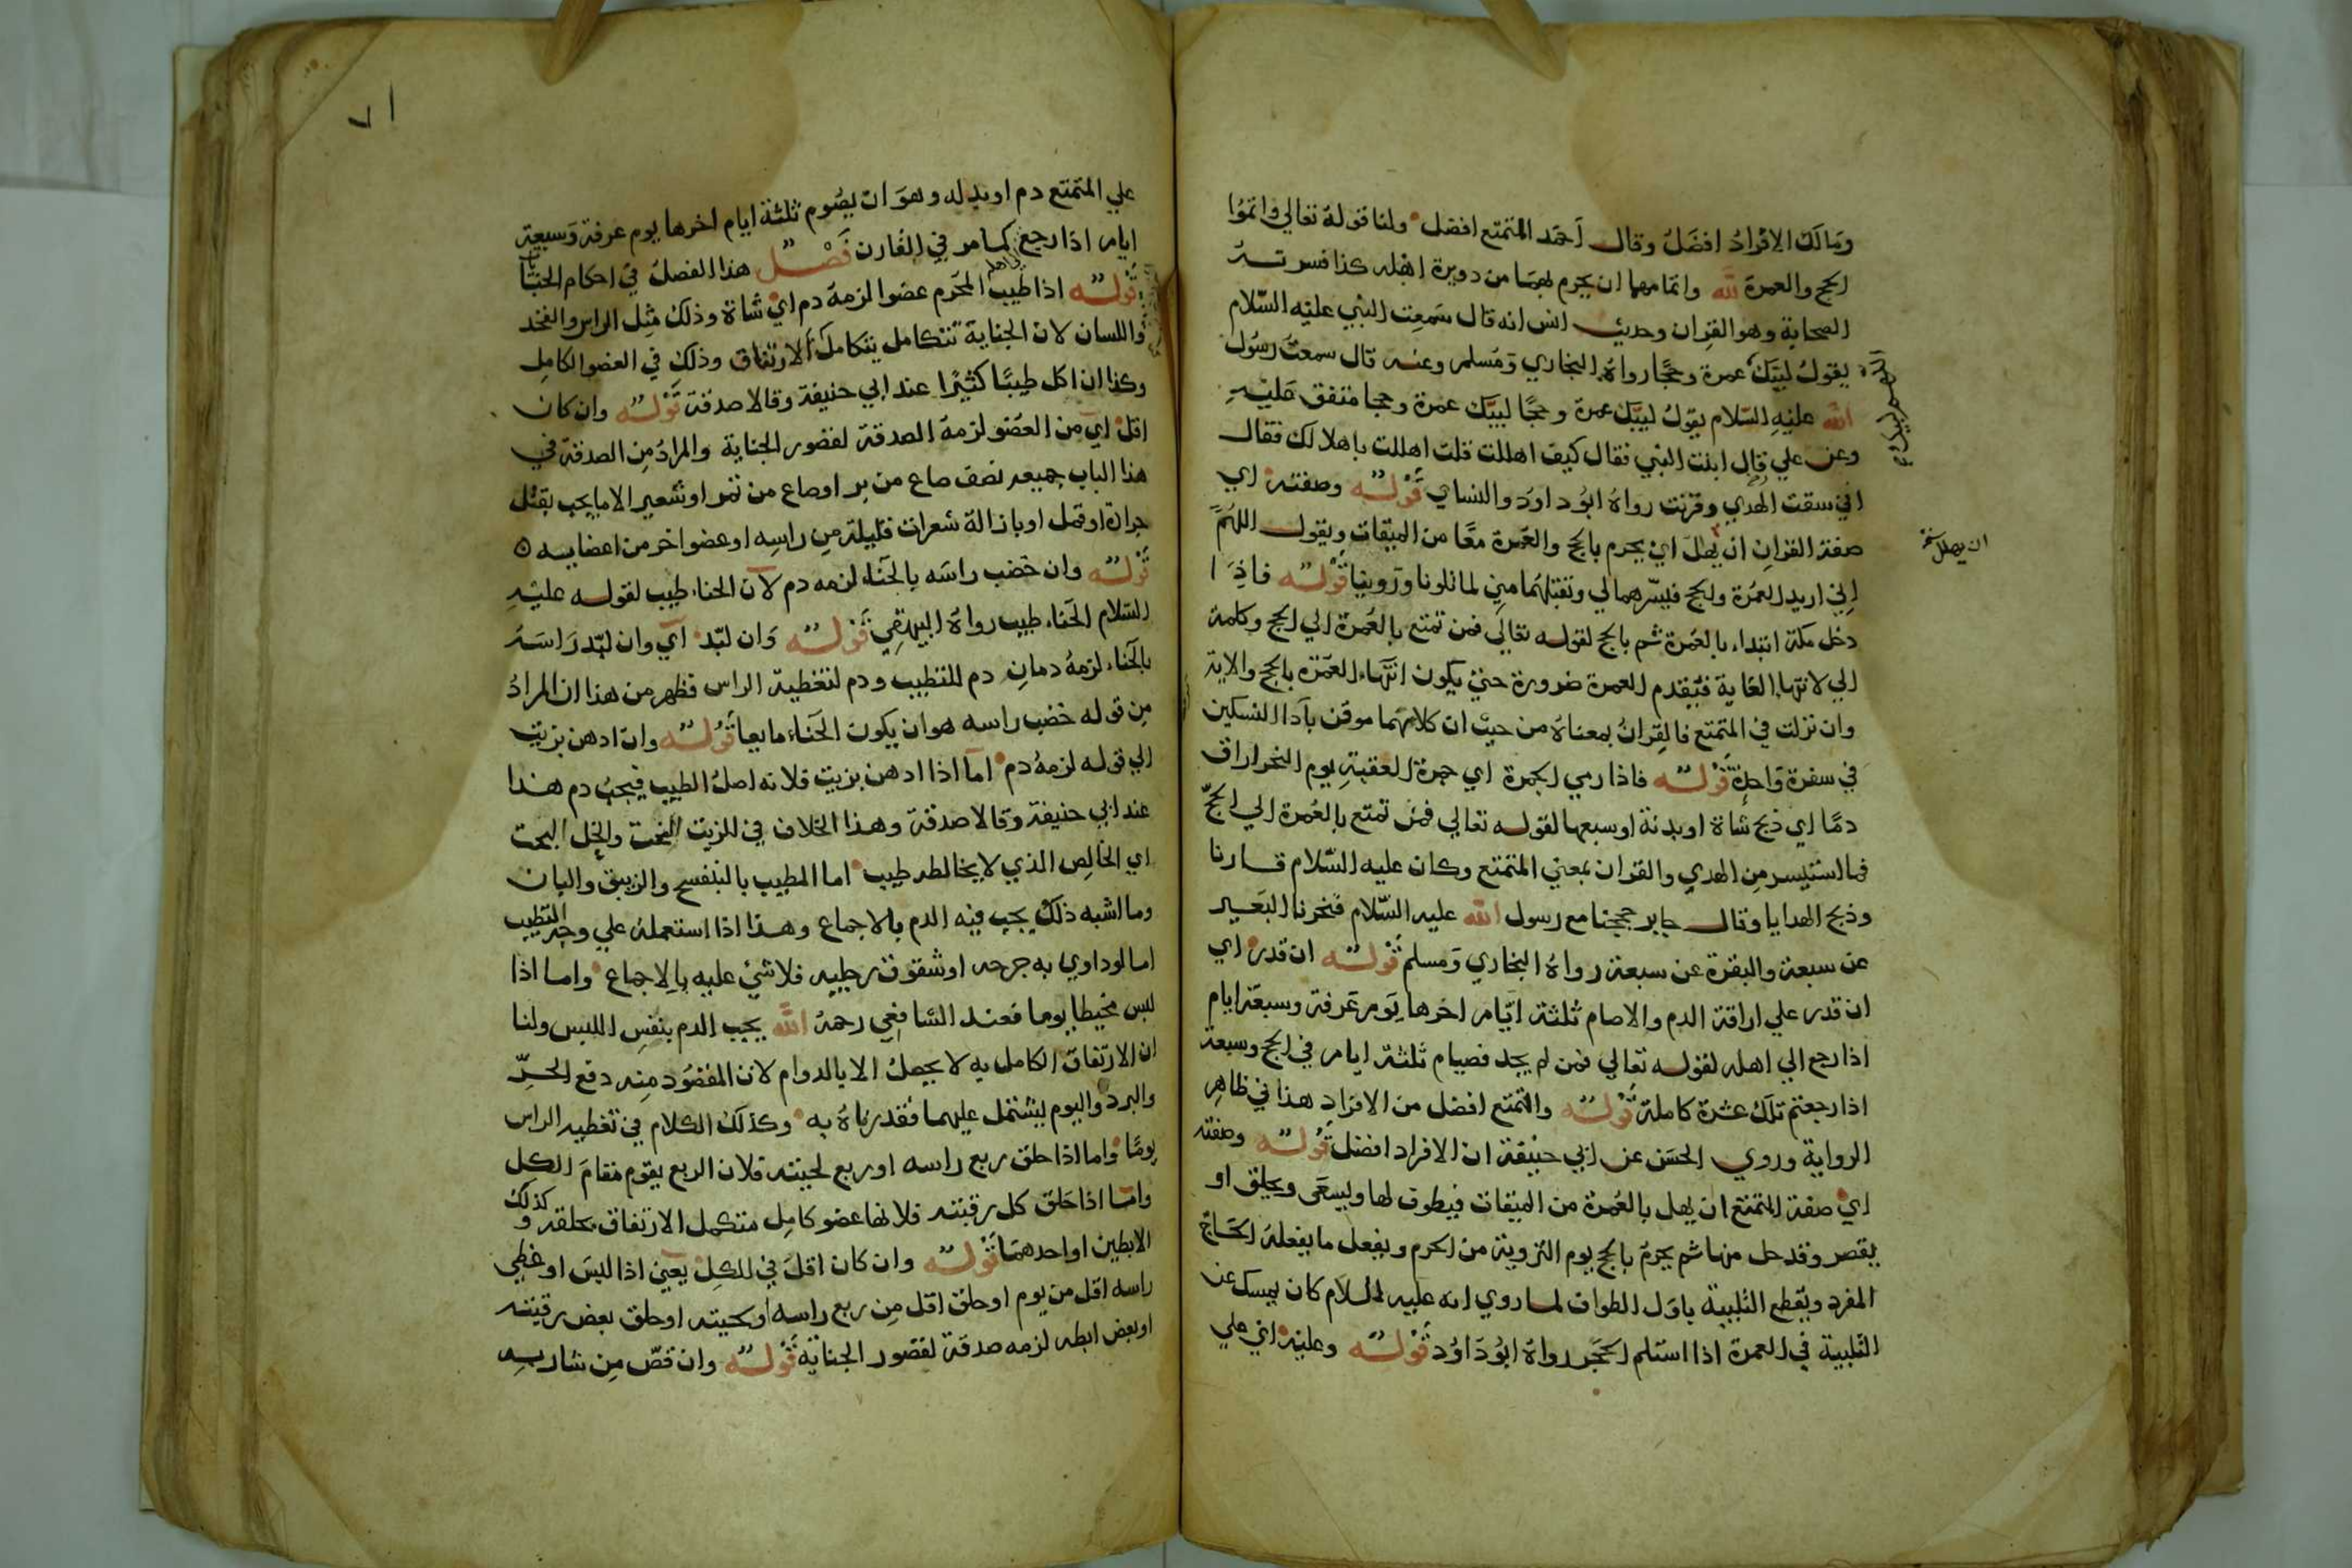 ومالك الافراد افضل وقال احمد المتمتع افضل ولنا قوله تعالي واتموا
الحج والعمرة لله واتمامهما ان يحرم بهما من دويرة اهله كذا فسرته
الصحابة وهو القران وحديث انس انه قال سمعت النبي عليه السلام
يقول لبيك عمرة وحجا رواه البخاري ومسلم وعنه قال سمعت رسول
الله عليه السلام يقول لبيك عمرة وحجا لبيك عمرة وحجا متفق عليه
وعن علي قال اتيت النبي فقال كيف اهللت قلت اهللت باهلالك فقال
اني سقت الهدي وقرنت رواه ابو داود والنساي قوله وصفته اي
صفة القران ان يهل اي يحرم بالحج والعمرة معا من الميقات ويقول اللهم
ان يهلل نسخة
اني اريد العمرة والحج فيسرهما لي وتقبلهما مني لما تلونا وروينا قوله فاذا
دخل مكة ابتداء بالعمرة ثم بالحج لقوله تعالي فمن تمتع بالعمرة الي الحج وكلمة
الي لانتهاء الغاية فيقدم العمرة ضرورة حتي يكون انتهاء العمرة بالحج والاية
وان نزلت في المتمتع فالقران بمعناه من حيث ان كلاهما موقن باداالنسكين
في سفرة واحدة قوله فاذا رمي الجمرة اي جمرة العقبة يوم النحر اراق
دما اي ذبح شاة او بدنة او سبعها لقوله تعالي فمن تمتع بالعمرة الي الحج
فمااستيسر من الهدي والقران بمعني المتمتع وكان عليه السلام قارنا
وذبح الهدايا وقال جابر حججنا مع رسول الله عليه السلام فنحرنا البعير
عن سبعة والبقرة عن سبعة رواه البخاري ومسلم قوله ان قدر اي
ان قدر علي اراقة الدم والاصام ثلثة ايام اخرها يوم عرفة وسبعة ايام
اذا رجع الي اهله لقوله تعالي فمن لم يجد فصيام ثلثة ايام في الحج وسبعة
اذا رجعتم تلك عشرة كاملة قوله والتمتع افضل من الافراد هذا في ظاهر
الرواية وروي الحسن عن ابي حنيفة ان الافراد افضل قوله وصفته
اي صفة المتمتع ان يهل بالعمرة من الميقات فيطوف لها ويسعي ويحلق او
يقصر وقد حل منها ثم يحرم بالحج يوم التروية من الحرم ويفعل ما يفعله الحاج
المفرد ويقطع التلبية باول الطواف لما روي انه عليه السلام كان يمسك عن
التلبية في العمرة اذا استلم الحجر رواه ابو داود قوله وعليه اي علي
٧١
علي المتمتع دم او بدله وهو ان يصوم ثلثة ايام اخرها يوم عرفة وسبعة
ايام اذا رجع كما مر في القارن فصل هذا الفصل في احكام الجنايات
قوله اذا طيب المحرم عضوا لزمه دم اي شاة وذلك مثل الراس والفخذ
واللسان لان الجناية تتكامل بتكامل الارتفاق وذلك في العضو الكامل
وكذا ان اكل طيبا كثيرا عند ابي حنيفة وقالا صدقة قوله وان كان
اقل اي من العضو لزمه الصدقة لقصور الجناية والمراد من الصدقة في
هذا الباب جميعه نصف صاع من بر او صاع من تمر او شعير الا ما يجب بقتل
جرادة او قمل او بازالة شعرات قليلة من راسه او عضو اخر من اعضايه
قوله وان خضب راسه بالحناء لزمه دم لان الحناء طيب لقوله عليه
السلام الحناء طيب رواه البيهقي قوله وان لبد اي وان لبد راسه
بالحناء لزمه دمان دم للتطيب ودم لتغطية الراس فظهر من هذا ان المراد
من قوله خضب راسه هو ان يكون الحناء مايعا قوله وان ادهن بزيت
الي قوله لزمه دم اما اذا ادهن بزيت فلانه اصل الطيب فيجب دم هذا
عند ابي حنيفة وقالا صدقة وهذا الخلاف في الزيت البحت والخل البحت
اي الخالص الذي لا يخالطه طيب اما المطيب بالبنفسج والزيبق والبان
وما اشبه ذلك يجب فيه الدم بالاجماع وهذا اذا استعمله علي وجه التطيب
اما لو داوي به جرحه او شقوق رجليه فلا شئ عليه بالاجماع واما اذا
لبس مخيطا يوما فعند الشافعي رحمه الله يجب الدم بنفس اللبس ولنا
ان الارتفاق الكامل به لا يحصل الا بالدوام لان المقصود منه دفع الحر
والبرد واليوم يشتمل عليهما فقدرناه به وكذلك الكلام في تغطية الراس
يوما واما اذا حلق ربع راسه او ربع لحيته فلان الربع يقوم مقام الكل
واما اذا حلق كل رقبته فلانها عضو كامل متكمل الارتفاق بحلقه وكذلك
الابطين او احدهما قوله وان كان اقل في الكل يعني اذا لبس او غطي
راسه اقل من يوم او حلق اقل من ربع راسه او لحيته او حلق بعض رقبته
او بعض ابطه لزمه صدقة لقصور الجناية قوله وان قص من شاربه